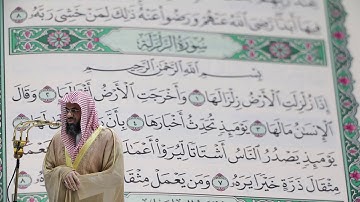 فِيهَا أَبَدًا رَضِيَ اللَّهُ عَنْهُمْ وَرَضُوا عَنْهُ ذَٰلِكَ لِمَنْ خَشِيَ رَبَّهُ ٨
سُورَةُ الزَّلْزَلَةِ
بِسْمِ اللَّهِ الرَّحْمَٰنِ الرَّحِيمِ
إِذَا زُلْزِلَتِ الْأَرْضُ زِلْزَالَهَا ١ وَأَخْرَجَتِ الْأَرْضُ أَثْقَالَهَا ٢ وَقَالَ
الْإِنسَٰنُ مَا لَهَا ٣ يَوْمَئِذٍ تُحَدِّثُ أَخْبَارَهَا ٤ بِأَنَّ
يَوْمَئِذٍ يَصْدُرُ النَّاسُ أَشْتَاتًا لِّيُرَوْا أَعْمَٰلَ
مِثْقَالَ ذَرَّةٍ خَيْرًا يَرَهُ ٧ وَمَن يَعْمَلْ مِثْقَالَ